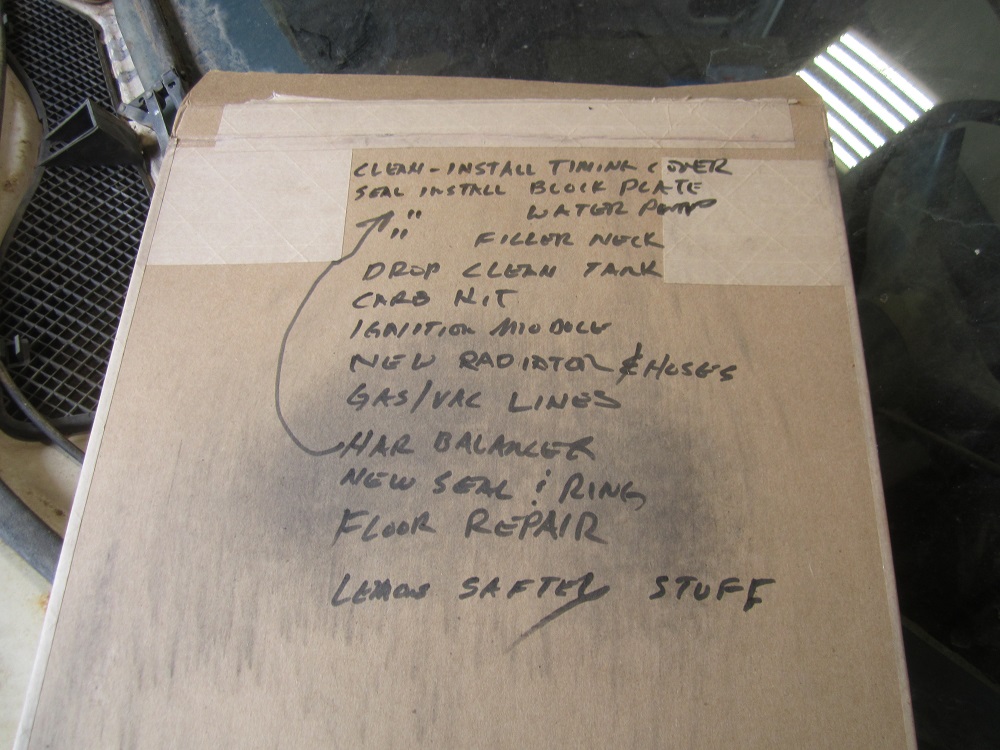 CLEAN-INSTALL TIMING COVER
SEAL INSTALL BLOCK PLATE
" WATER PUMP
" FILLER NECK
DROP CLEAN TANK
CARB KIT
IGNITION MODULE
NEW RADIATOR & HOSES
GAS/VAC LINES
HAR BALANCER
NEW SEAL & RING
FLOOR REPAIR
LEMONS SAFTEY STUFF